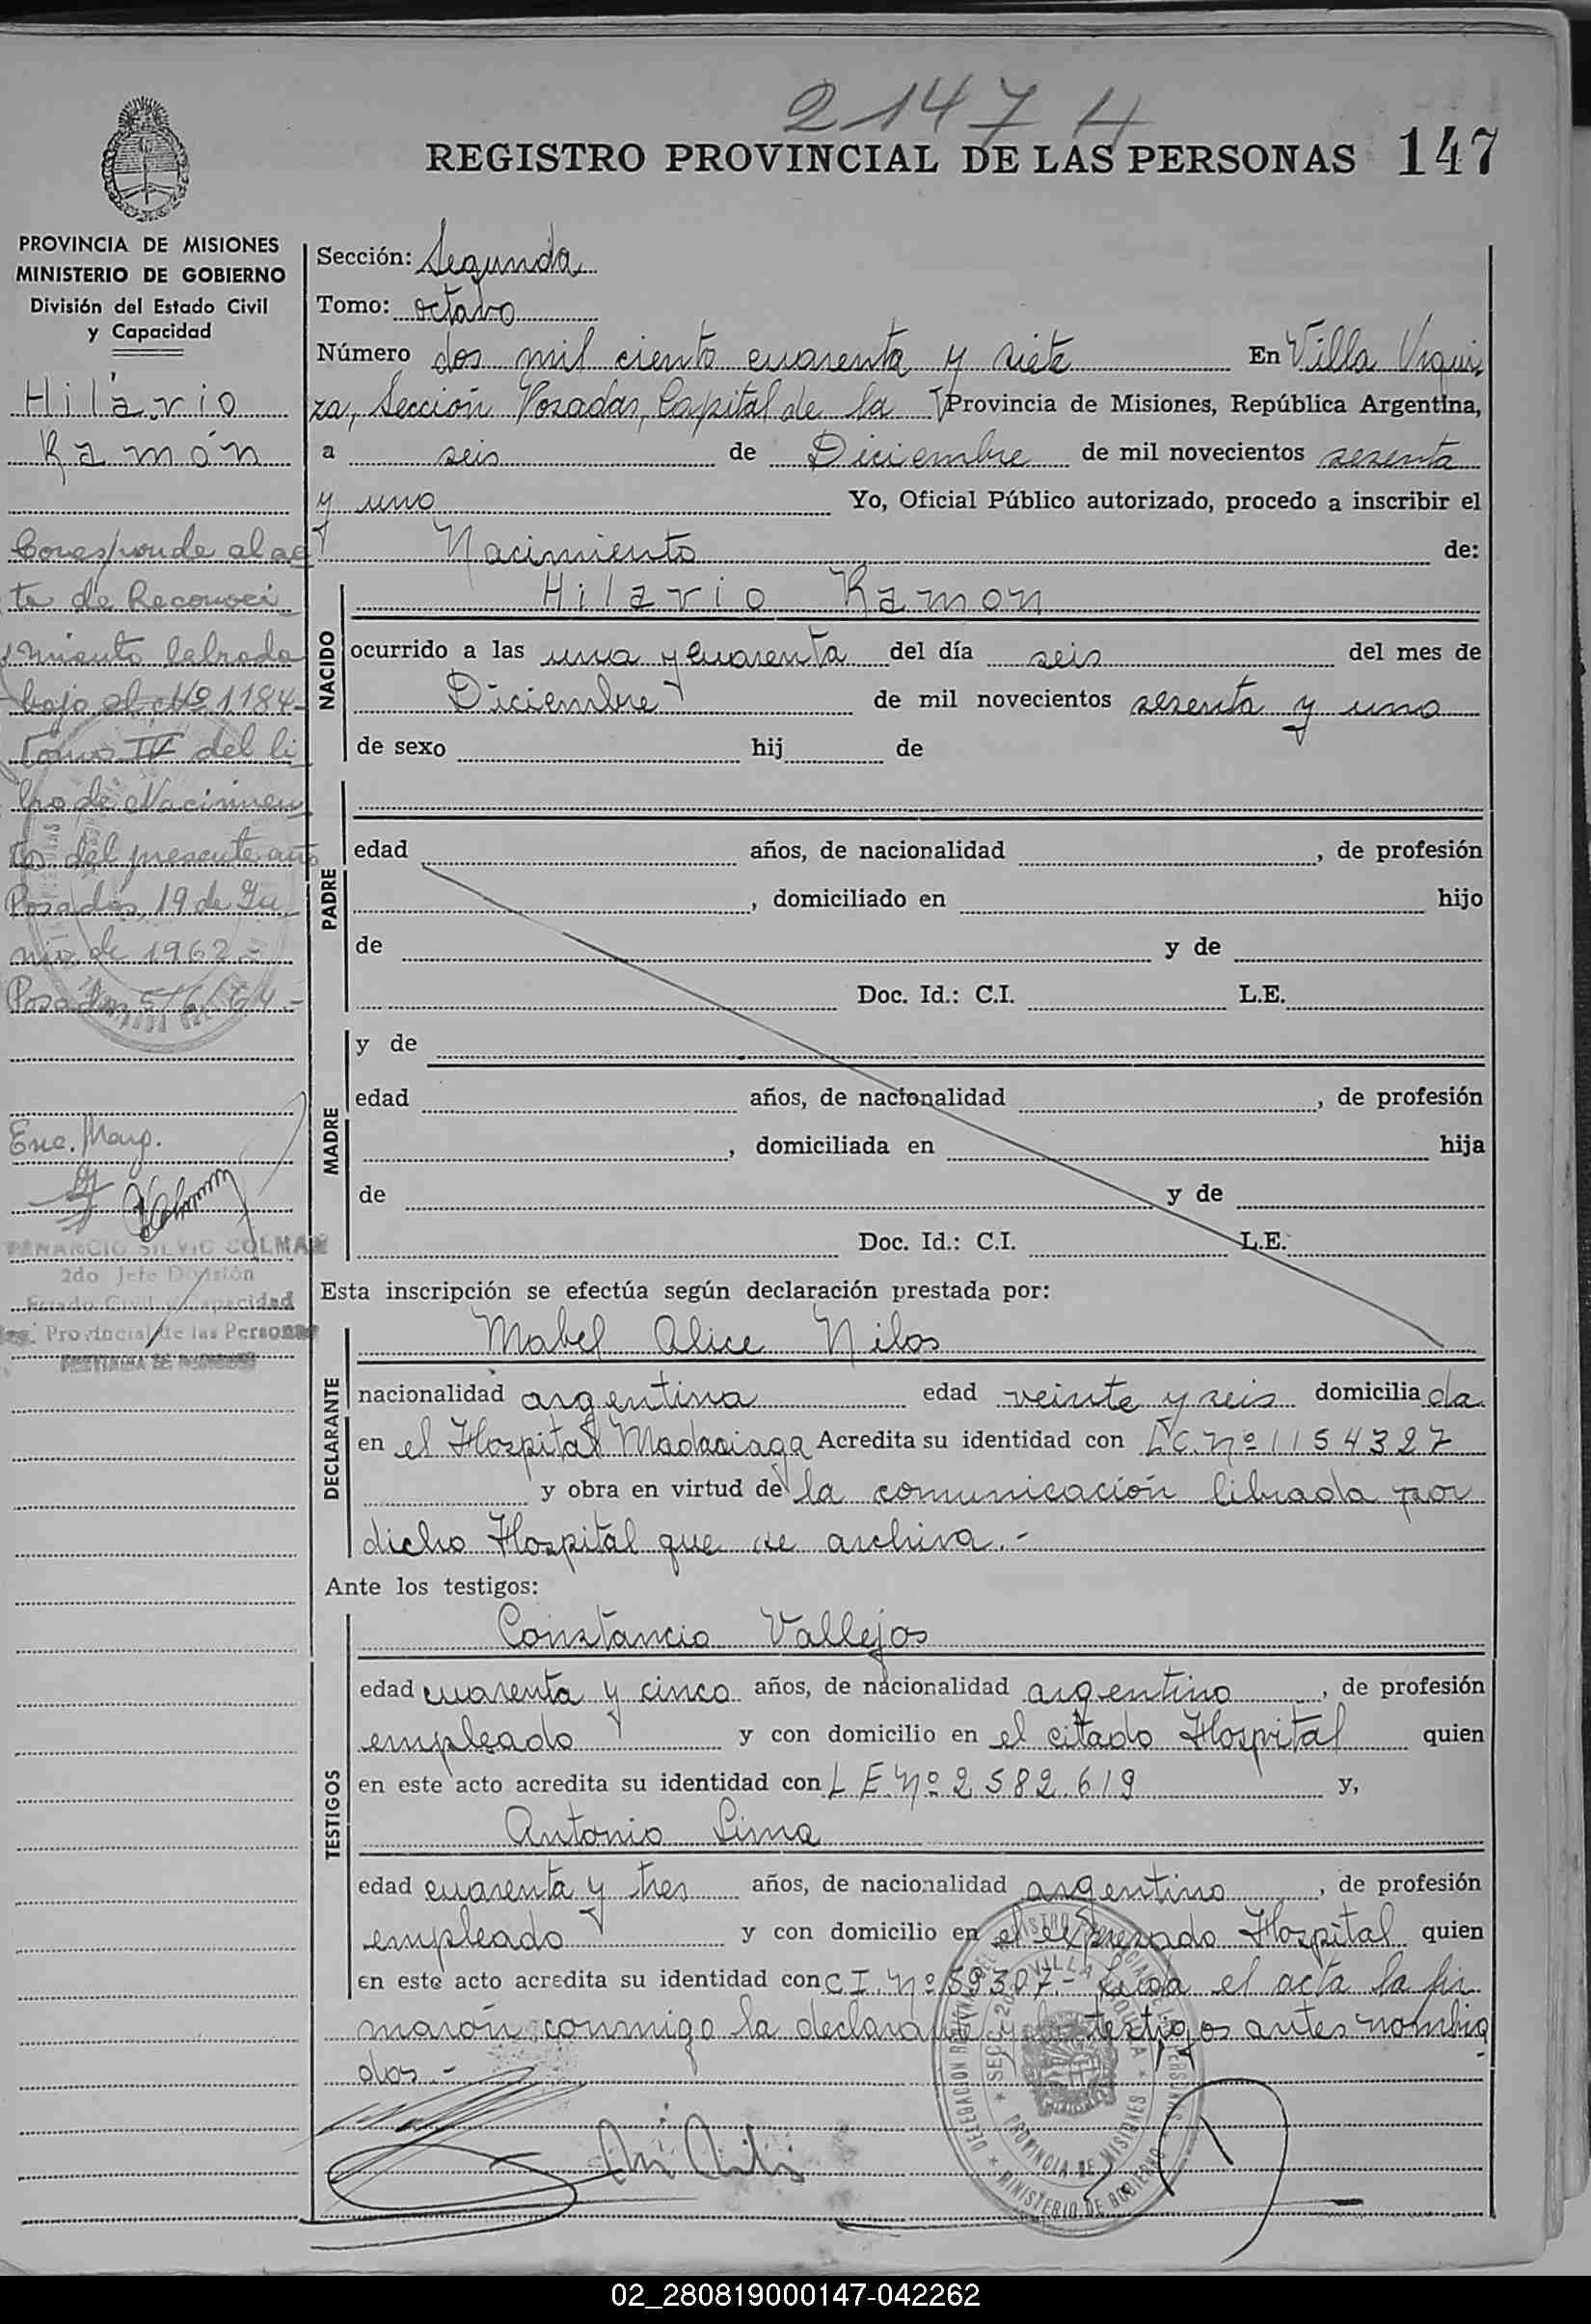 2147 H
REGISTRO PROVINCIAL DE LAS PERSONAS 147
PROVINCIA DE MISIONES
MINISTERIO DE GOBIERNO
División del Estado Civil
y Capacidad
Hilario
Ramón
Corresponde al ac
ta de Reconoci
miento labrada
bajo el Nº 1184-
Tomo IV del li
bro de Nacimien
to del presente año
Posadas, 19 de Ju
nio de 1962.-
Posadas 5/6/64.-
Enc. Marg.
VENANCIO SILVIO COLMAN
2do Jefe División
Estado Civil y Capacidad
Reg. Provincial de las Personas
PROVINCIA DE MISIONES
Sección: Segunda
Tomo: octavo
Número dos mil ciento cuarenta y siete En Villa Urqui
za, Sección Posadas, Capital de la Provincia de Misiones, República Argentina,
a seis de Diciembre de mil novecientos sesenta
y uno Yo, Oficial Público autorizado, procedo a inscribir el
Nacimiento de:
NACIDO
Hilario Ramon
ocurrido a las una y cuarenta del día seis del mes de
Diciembre de mil novecientos sesenta y uno
de sexo hij de
PADRE
edad años, de nacionalidad , de profesión
, domiciliado en hijo
de y de
Doc. Id.: C.I. L.E.
MADRE
y de
edad años, de nacionalidad , de profesión
, domiciliada en hija
de y de
Doc. Id.: C.I. L.E.
Esta inscripción se efectúa según declaración prestada por:
DECLARANTE
Mabel Alice Nilos
nacionalidad argentina edad veinte y seis domiciliada
en el Hospital Madariaga Acredita su identidad con L.C. Nº 1154327
y obra en virtud de la comunicación librada por
dicho Hospital que se archiva.-
Ante los testigos:
TESTIGOS
Constancio Vallejos
edad cuarenta y cinco años, de nacionalidad argentino, de profesión
empleado y con domicilio en el citado Hospital quien
en este acto acredita su identidad con L E. Nº 2582.619 y,
Antonio Lima
edad cuarenta y tres años, de nacionalidad argentino, de profesión
empleado y con domicilio en el expresado Hospital quien
en este acto acredita su identidad con C I. Nº 59307.- Leída el acta la fir
marón conmigo la declarante y los testigos antes nombra
dos.-
MINISTERIO DE GOBIERNO
PROVINCIA DE MISIONES
02_280819000147-042262